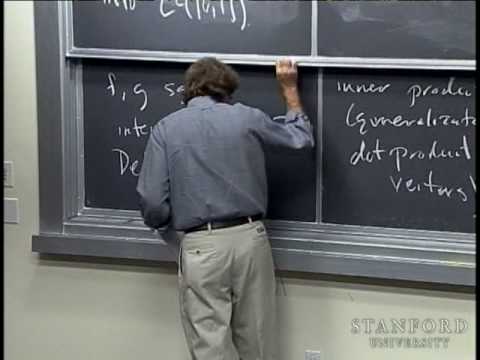 into L²([0,1]).
f, g sq
inte
De
inner produ
(generalizat
dot product
vectors)
STANFORD
UNIVERSITY